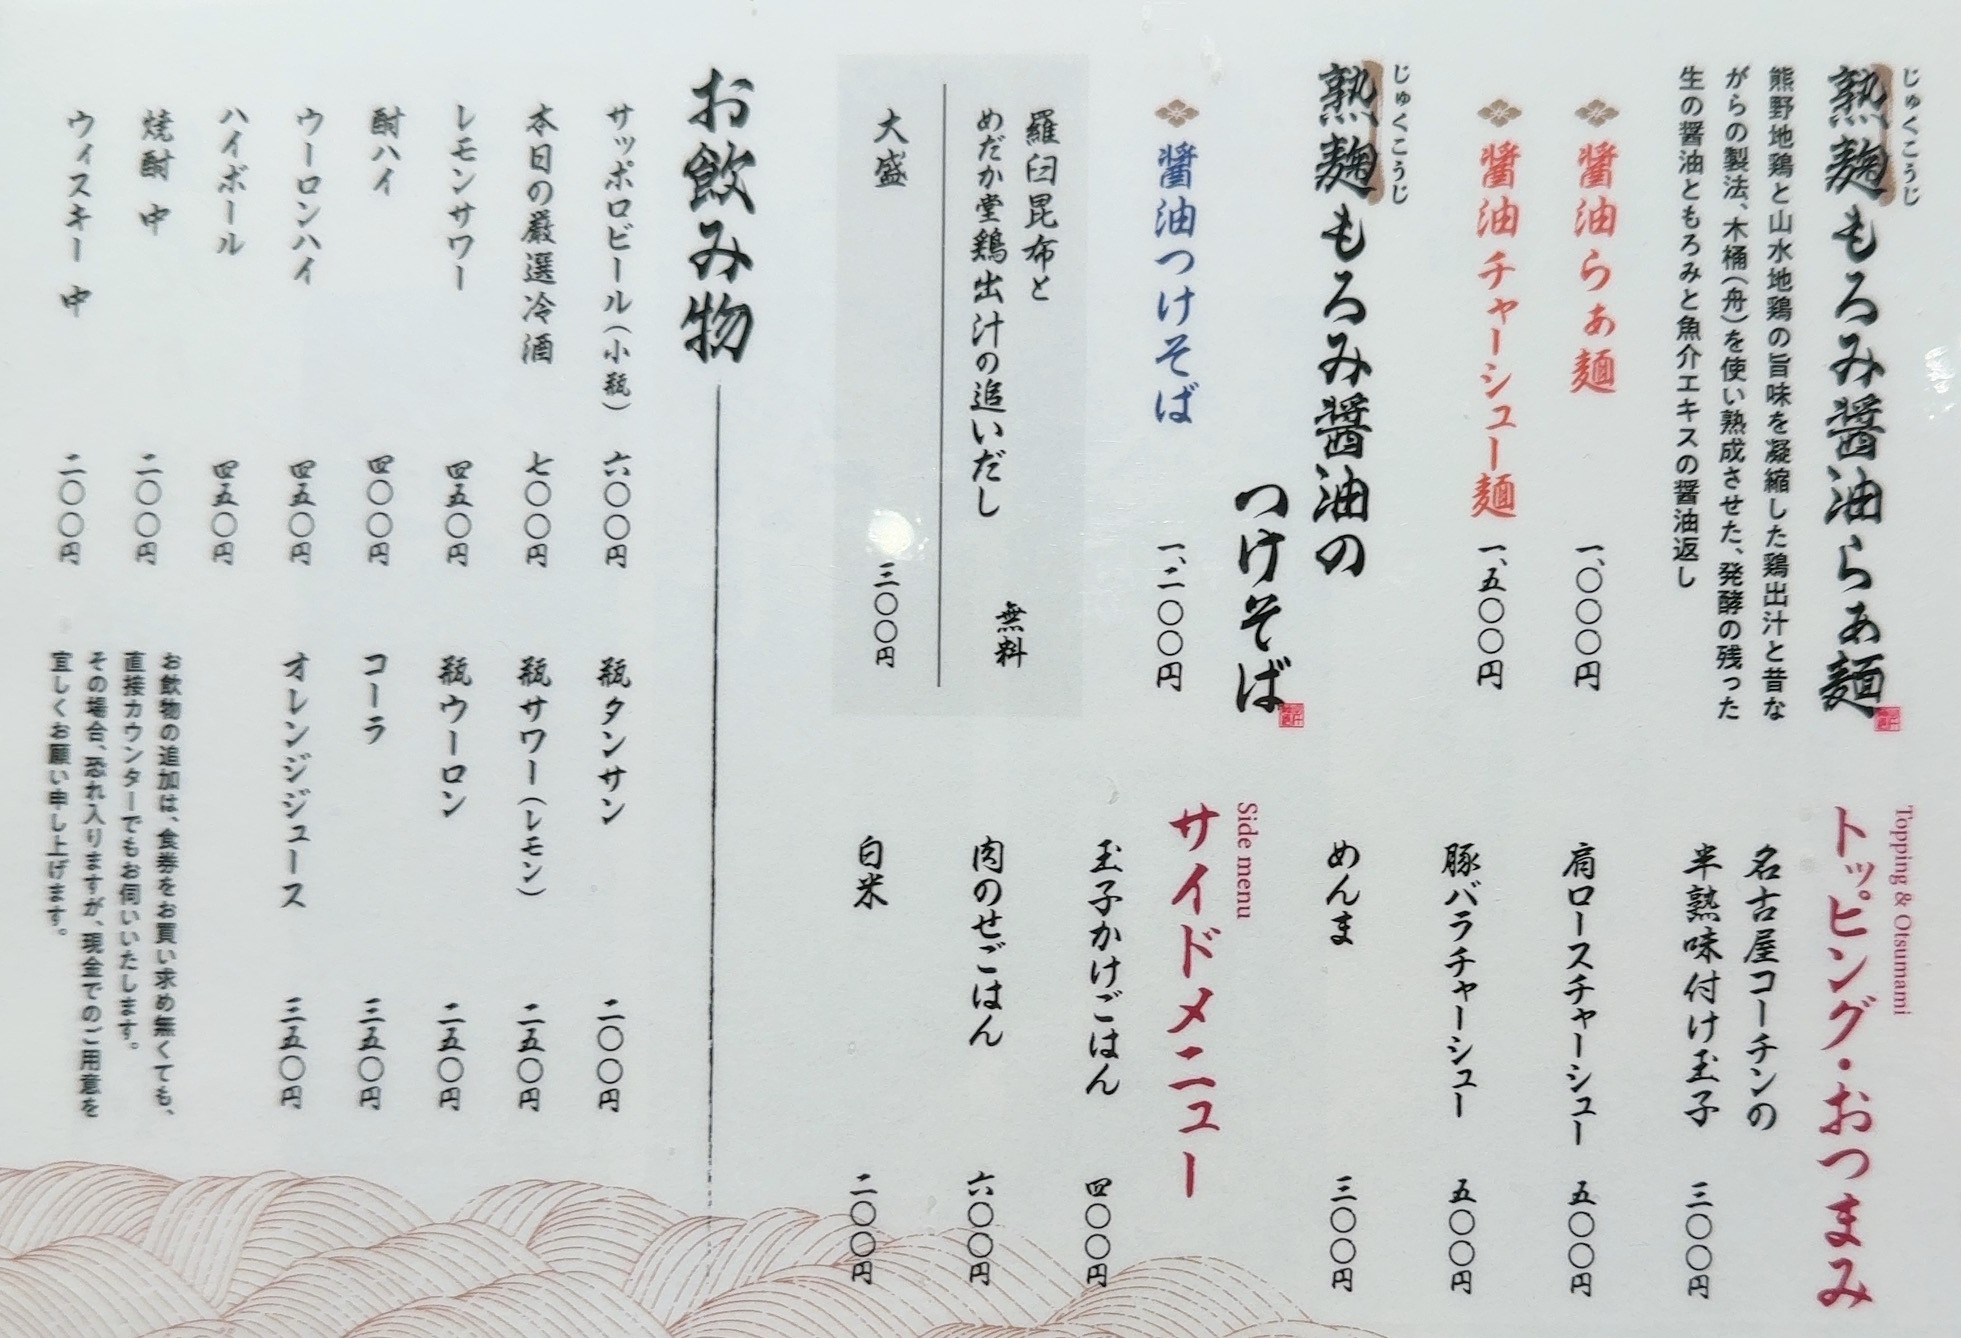 じゅくこうじ
熟麹もろみ醤油らぁ麺
熊野地鶏と山水地鶏の旨味を凝縮した鶏出汁と昔な
がらの製法、木桶(舟)を使い熟成させた、発酵の残った
生の醤油ともろみと魚介エキスの醤油返し
醤油らぁ麺 一、〇〇〇円
醤油チャーシュー麺 一、五〇〇円
じゅくこうじ
熟麹もろみ醤油の
つけそば
醤油つけそば 一、二〇〇円
羅臼昆布と
めだか堂鶏出汁の追いだし 無料
大盛 三〇〇円
Topping & Otsumami
トッピング・おつまみ
名古屋コーチンの
半熟味付け玉子 三〇〇円
肩ロースチャーシュー 五〇〇円
豚バラチャーシュー 五〇〇円
めんま 三〇〇円
Side menu
サイドメニュー
玉子かけごはん 四〇〇円
肉のせごはん 六〇〇円
白米 二〇〇円
お飲み物
サッポロビール(小瓶) 六〇〇円
本日の厳選冷酒 七〇〇円
レモンサワー 四五〇円
酎ハイ 四〇〇円
ウーロンハイ 四五〇円
ハイボール 四五〇円
焼酎 中 二〇〇円
ウィスキー 中 二〇〇円
瓶タンサン 二〇〇円
瓶サワー(レモン) 二五〇円
瓶ウーロン 二五〇円
コーラ 三五〇円
オレンジジュース 三五〇円
お飲物の追加は、食券をお買い求め無くても、
直接カウンターでもお伺いいたします。
その場合、恐れ入りますが、現金でのご用意を
宜しくお願い申し上げます。